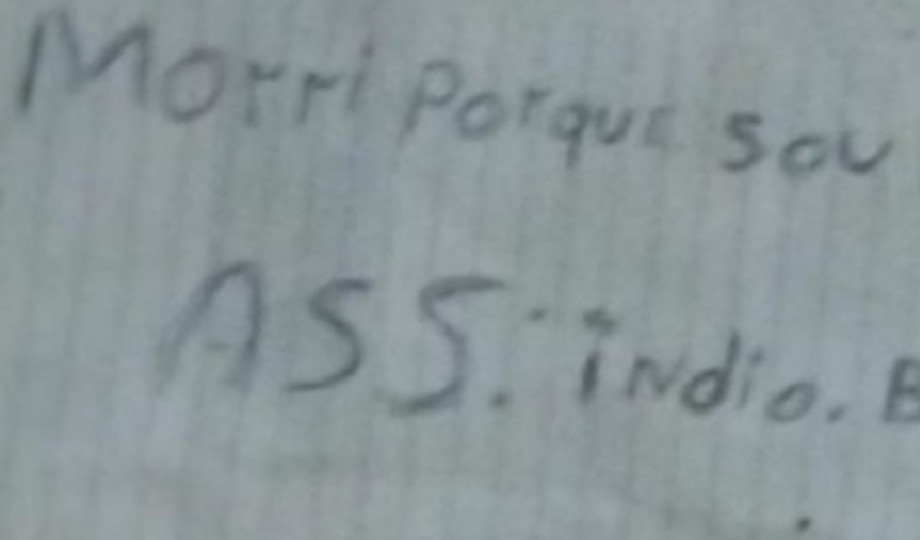 Morri Porque sou
ASS.: índio. B